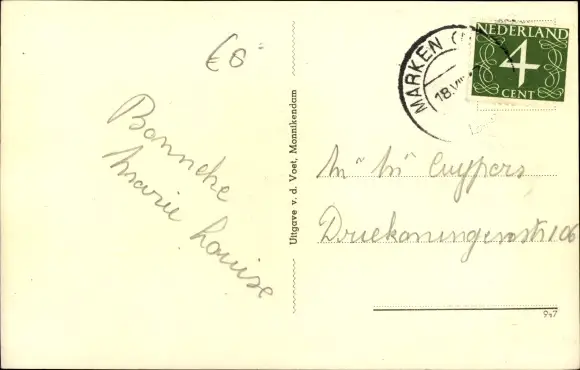 €8
Bonneke
Marie Louise
Uitgave v. d. Voet, Monnikendam
MARKEN
18.VIII
NEDERLAND
4
CENT
Mr Mr Cuypers
Driekoningenstr 106
957